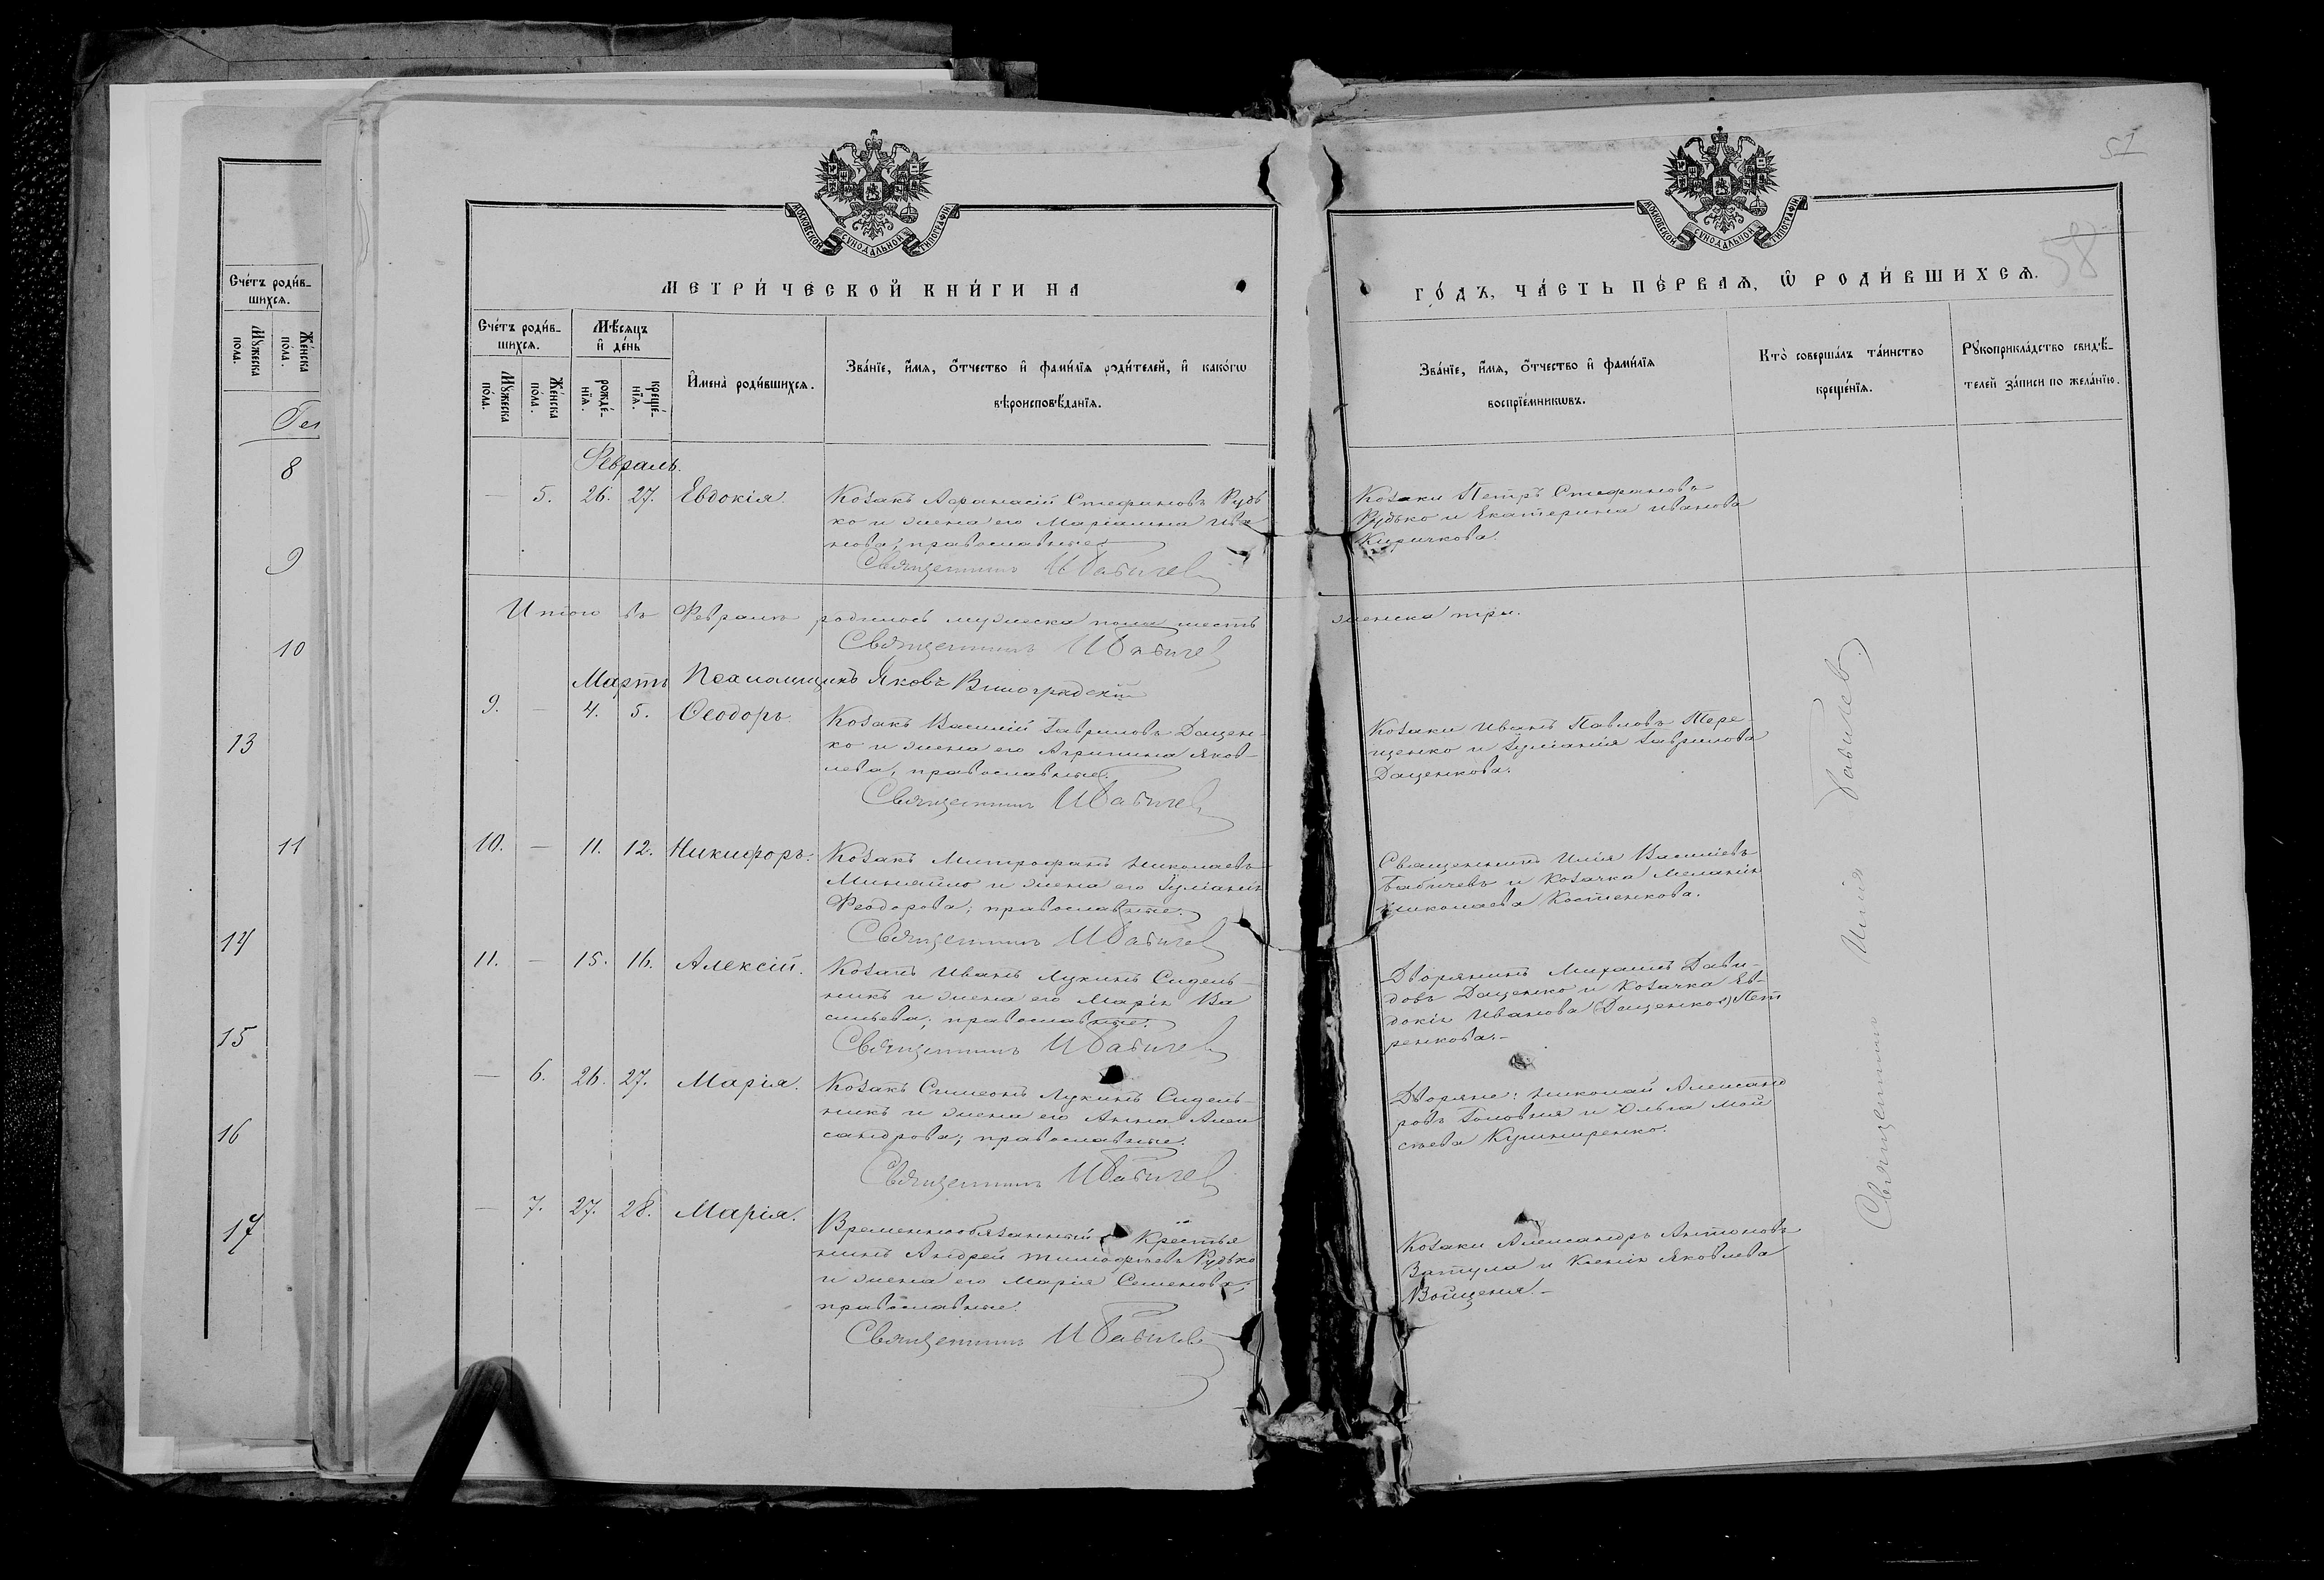 Счетъ родив-
шихся.
Мужеска
пола.
Женска
пола.
8
9
10
13
11
14
15
16
17
МОСКОВСКОЙ СУНОДАЛЬНОЙ ТИПОГРАФІИ
МЕТРИЧЕСКОЙ КНИГИ НА
Счетъ родив-
шихся.
Мѣсяцъ
и день
Мужеска
пола.
Женска
пола.
рожде-
нія.
креще-
нія.
Имена родившихся.
Званіе, имя, отчество и фамилія родителей, и какогѡ
вѣроисповѣданія.
Февраль.
5. 26. 27. Евдокія.
Козакъ Афанасій Стефановъ Рудь
ко и жена его Маріамна Ива
нова; православные.
Священникъ И Бабичев
Итого въ Февралѣ родилось мужеска пола шесть
Священникъ И Бабичев
Мартъ Псаломщикъ Яковъ Виноградскій
9. — 4. 5. Ѳеодоръ.
Козакъ Василій Гавриловъ Даценко
ко и жена его Агрипина Яков-
лева, православные.
Священникъ И Бабичев
10. — 11. 12. Никифоръ.
Козакъ Митрофанъ Николаевъ
Миняйло и жена его Іуліанія
Феодорова; православные.
Священникъ И Бабичев
11. — 15. 16. Алексій.
Козакъ Иванъ Лукинъ Сидель-
никъ и жена его Марія Ва
сильева; православные.
Священникъ И Бабичев
— 6. 26. 27. Марія.
Козакъ Симеонъ Лукинъ Сидель-
никъ и жена его Анна Алек
сандрова; православные.
Священникъ И Бабичев
— 7. 27. 28. Марія.
Временнообязанный Крестья
нинъ Андрей Тимофѣевъ Рудько
и жена его Марія Семенова,
православные.
Священникъ И Бабичев
51
58
МОСКОВСКОЙ СУНОДАЛЬНОЙ ТИПОГРАФІИ
ГОДЪ, ЧАСТЬ ПЕРВАЯ, Ѡ РОДИВШИХСЯ.
Званіе, имя, отчество и фамилія
воспріемникѡвъ.
Кто совершалъ таинство
крещенія.
Рукоприкладство свидѣ-
телей записи по желанію.
Козаки Петръ Стефановъ
Рудько и Екатерина Иванова
Киричкова.
женска три.
Козаки Иванъ Павловъ Тере
щенко и Іуліанія Гаврилова
Даценкова.
Священникъ Илія Василіевъ
Бабичевъ и Козачка Меланія
Николаева Костенкова.
Дворянинъ Михаилъ Дави-
довъ Даценко и Козачка Ев-
докія Иванова (Даценкова) Пет
ренкова.—
Дворяне: Николай Александ
ровъ Головня и Ольга Мои
сѣева Кушниренко.
Козаки Александръ Антоновъ
Ватула и Ксенія Яковлева
Священникъ Илія Бабичев